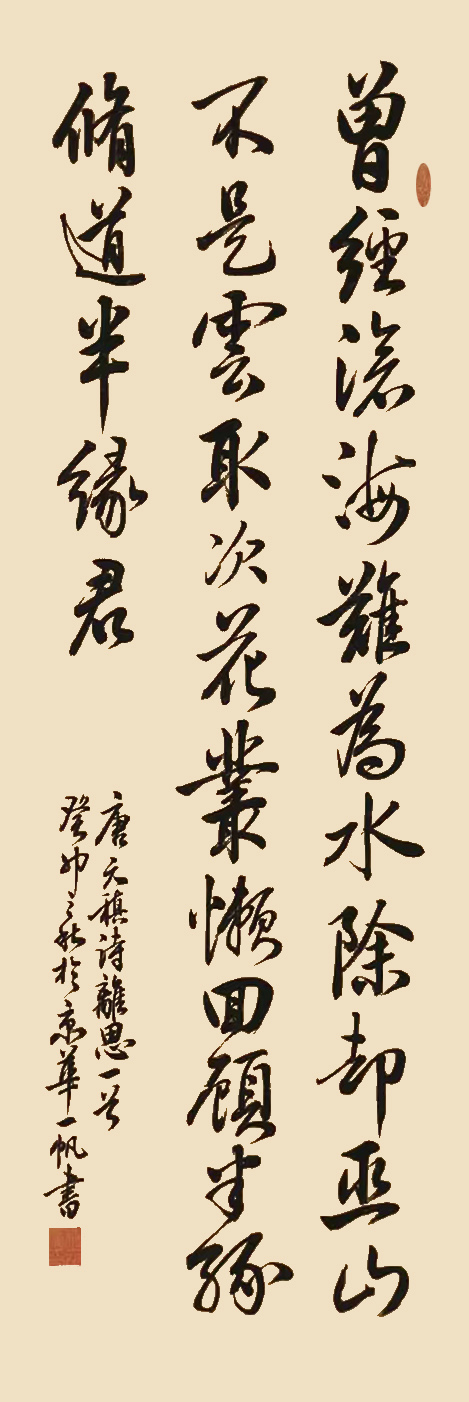 曾經滄海難為水除却巫山
不是雲取次花叢懶回顧半緣
脩道半緣君
唐元稹詩離思一首
癸卯之秋於京華一帆書